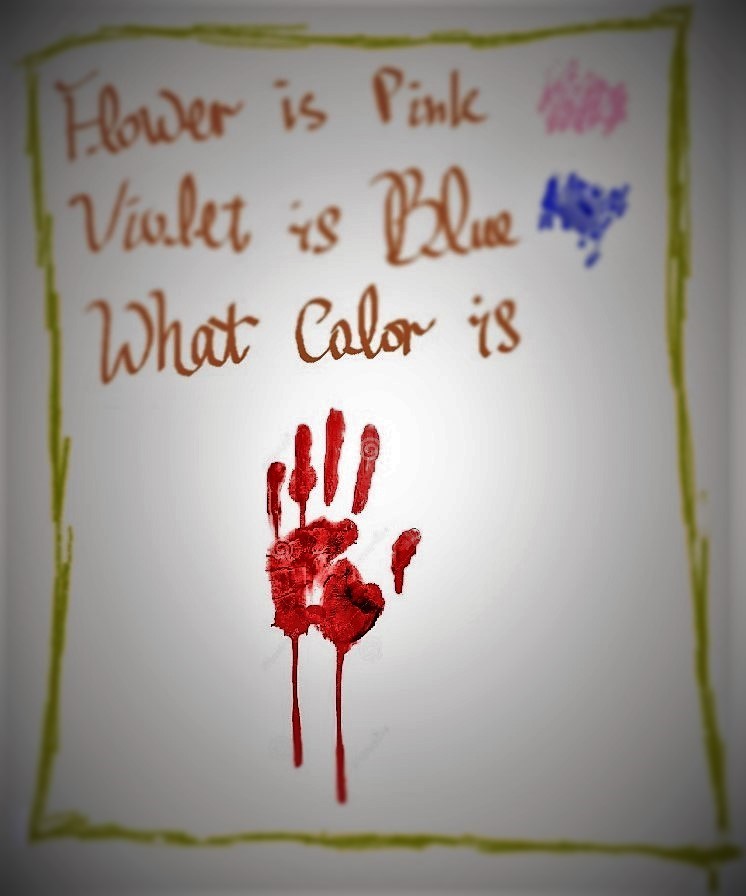 Flower is Pink
Violet is Blue
What Color is